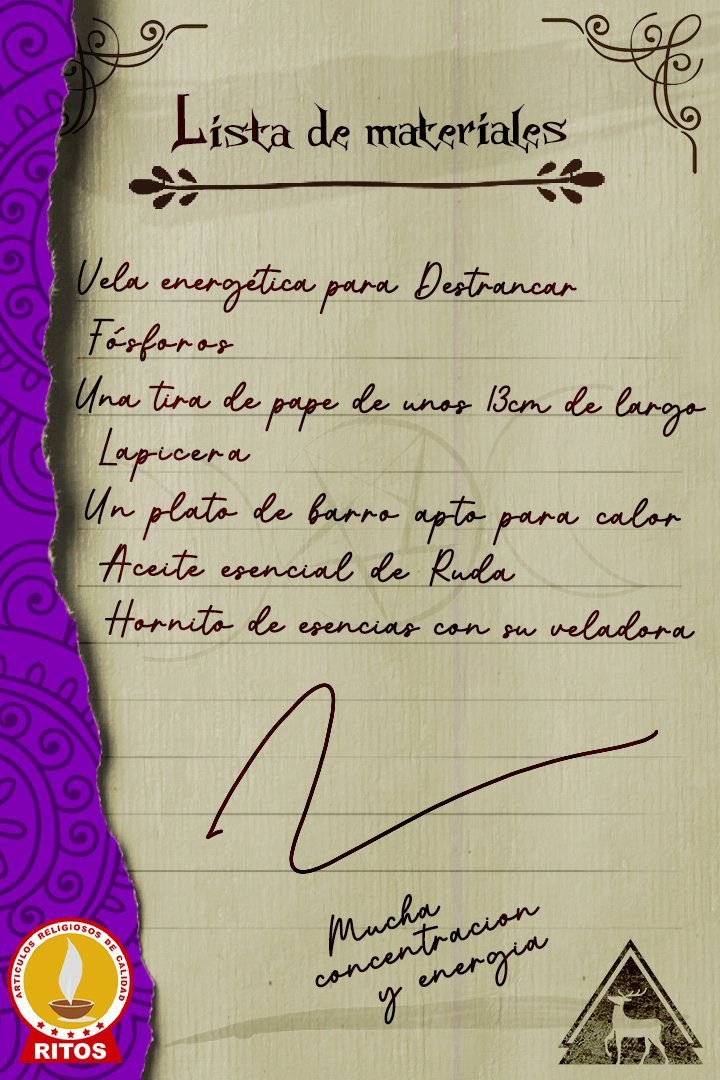 Lista de materiales
Vela energética para Destrancar
Fósforos
Una tira de pape de unos 13cm de largo
Lapicera
Un plato de barro apto para calor
Aceite esencial de Ruda
Hornito de esencias con su veladora
Mucha
concentracion
y energia
ARTICULOS RELIGIOSOS DE CALIDAD
RITOS